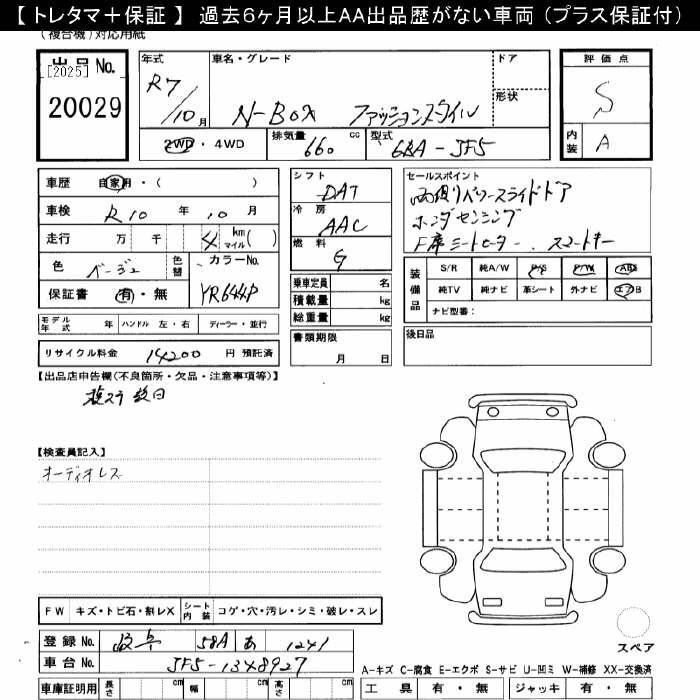 【 トレタマ＋保証 】 過去6ヶ月以上AA出品歴がない車両 (プラス保証付)
(複合機) 対応用紙
出品 No.
[2025]
20029
年式
R7/10月
車名・グレード
N-BOX ファッションスタイル
ドア
形状
2WD ・ 4WD
排気量 660 cc
型式 6BA-JF5
評価点
S
内装 A
車歴 自家用・( )
車検 R10 年 10 月
走行 万 千 4 km マイル( )
色 ベージュ 色替
カラーNo. YR644P
保証書 有・無
シフト DAT
冷房 AAC
燃料 G
乗車定員 名
積載量 kg
総重量 kg
書類期限
月 日
セールスポイント
両側パワースライドドア
ホンダセンシング
F席シートヒーター スマートキー
装備品
S/R 純A/W P/S P/W ABS
純TV 純ナビ 革シート 外ナビ エアB
ナビ型番：
後日品
モデル年式 年 ハンドル 左・右 ディーラー・並行
リサイクル料金 14200 円 預託済
【出品店申告欄(不良箇所・欠品・注意事項等)】
【検査員記入】
オーディオレス
FW キズ・トビ石・割レX シート内装 コゲ・穴・汚レ・シミ・破レ・スレ
登録 No. 岐阜 58A あ 1241
車台 No. JF5-1348927
車庫証明用 長さ cm 幅 cm 高さ cm
スペア
A-キズ C-腐食 E-エクボ S-サビ U-凹ミ W-補修 XX-交換済
工具 有・無 ジャッキ 有・無